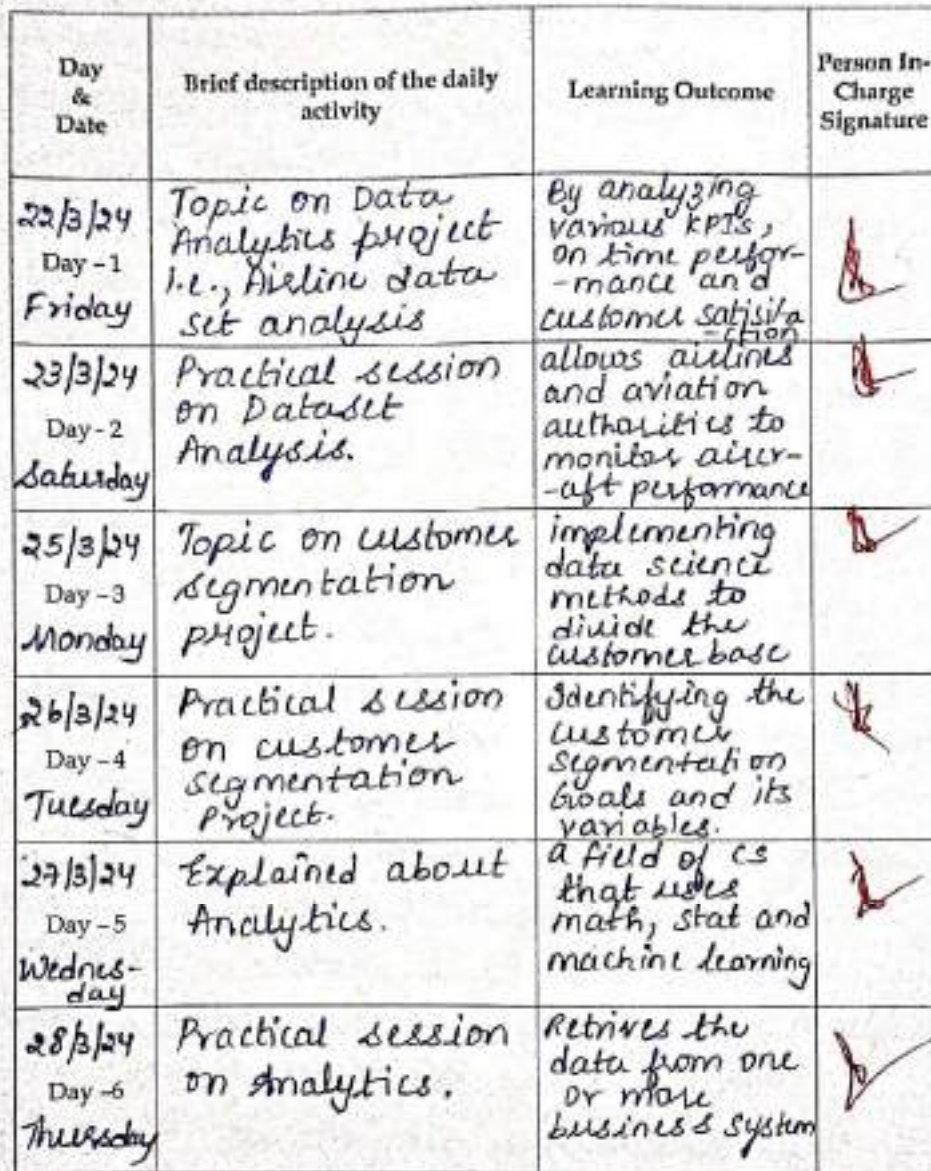 Day
&
Date
Brief description of the daily
activity
Learning Outcome
Person In-
Charge
Signature
22/3/24
Day - 1
Friday
Topic on Data
Analytics project
i.e., Airline data
set analysis
By analyzing
various KPIs,
on time perfor-
-mance and
customer satisifa
-ction
23/3/24
Day - 2
Saturday
Practical session
on Dataset
Analysis.
allows airlines
and aviation
authorities to
monitor aircr-
-aft performance
25/3/24
Day - 3
Monday
Topic on customer
segmentation
project.
implementing
data science
methods to
divide the
customer base
26/3/24
Day - 4
Tuesday
Practical session
on customer
segmentation
Project.
Identifying the
customer
segmentation
Goals and its
variables.
27/3/24
Day - 5
Wednes-
day
Explained about
Analytics.
a field of CS
that uses
math, stat and
machine learning
28/3/24
Day -6
Thursday
Practical session
on Analytics.
Retrives the
data from one
or more
business system